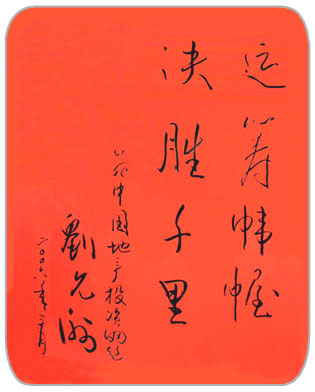 运筹帷幄
决胜千里
为中国地产投资网题
劉允洲
二〇〇六年二月